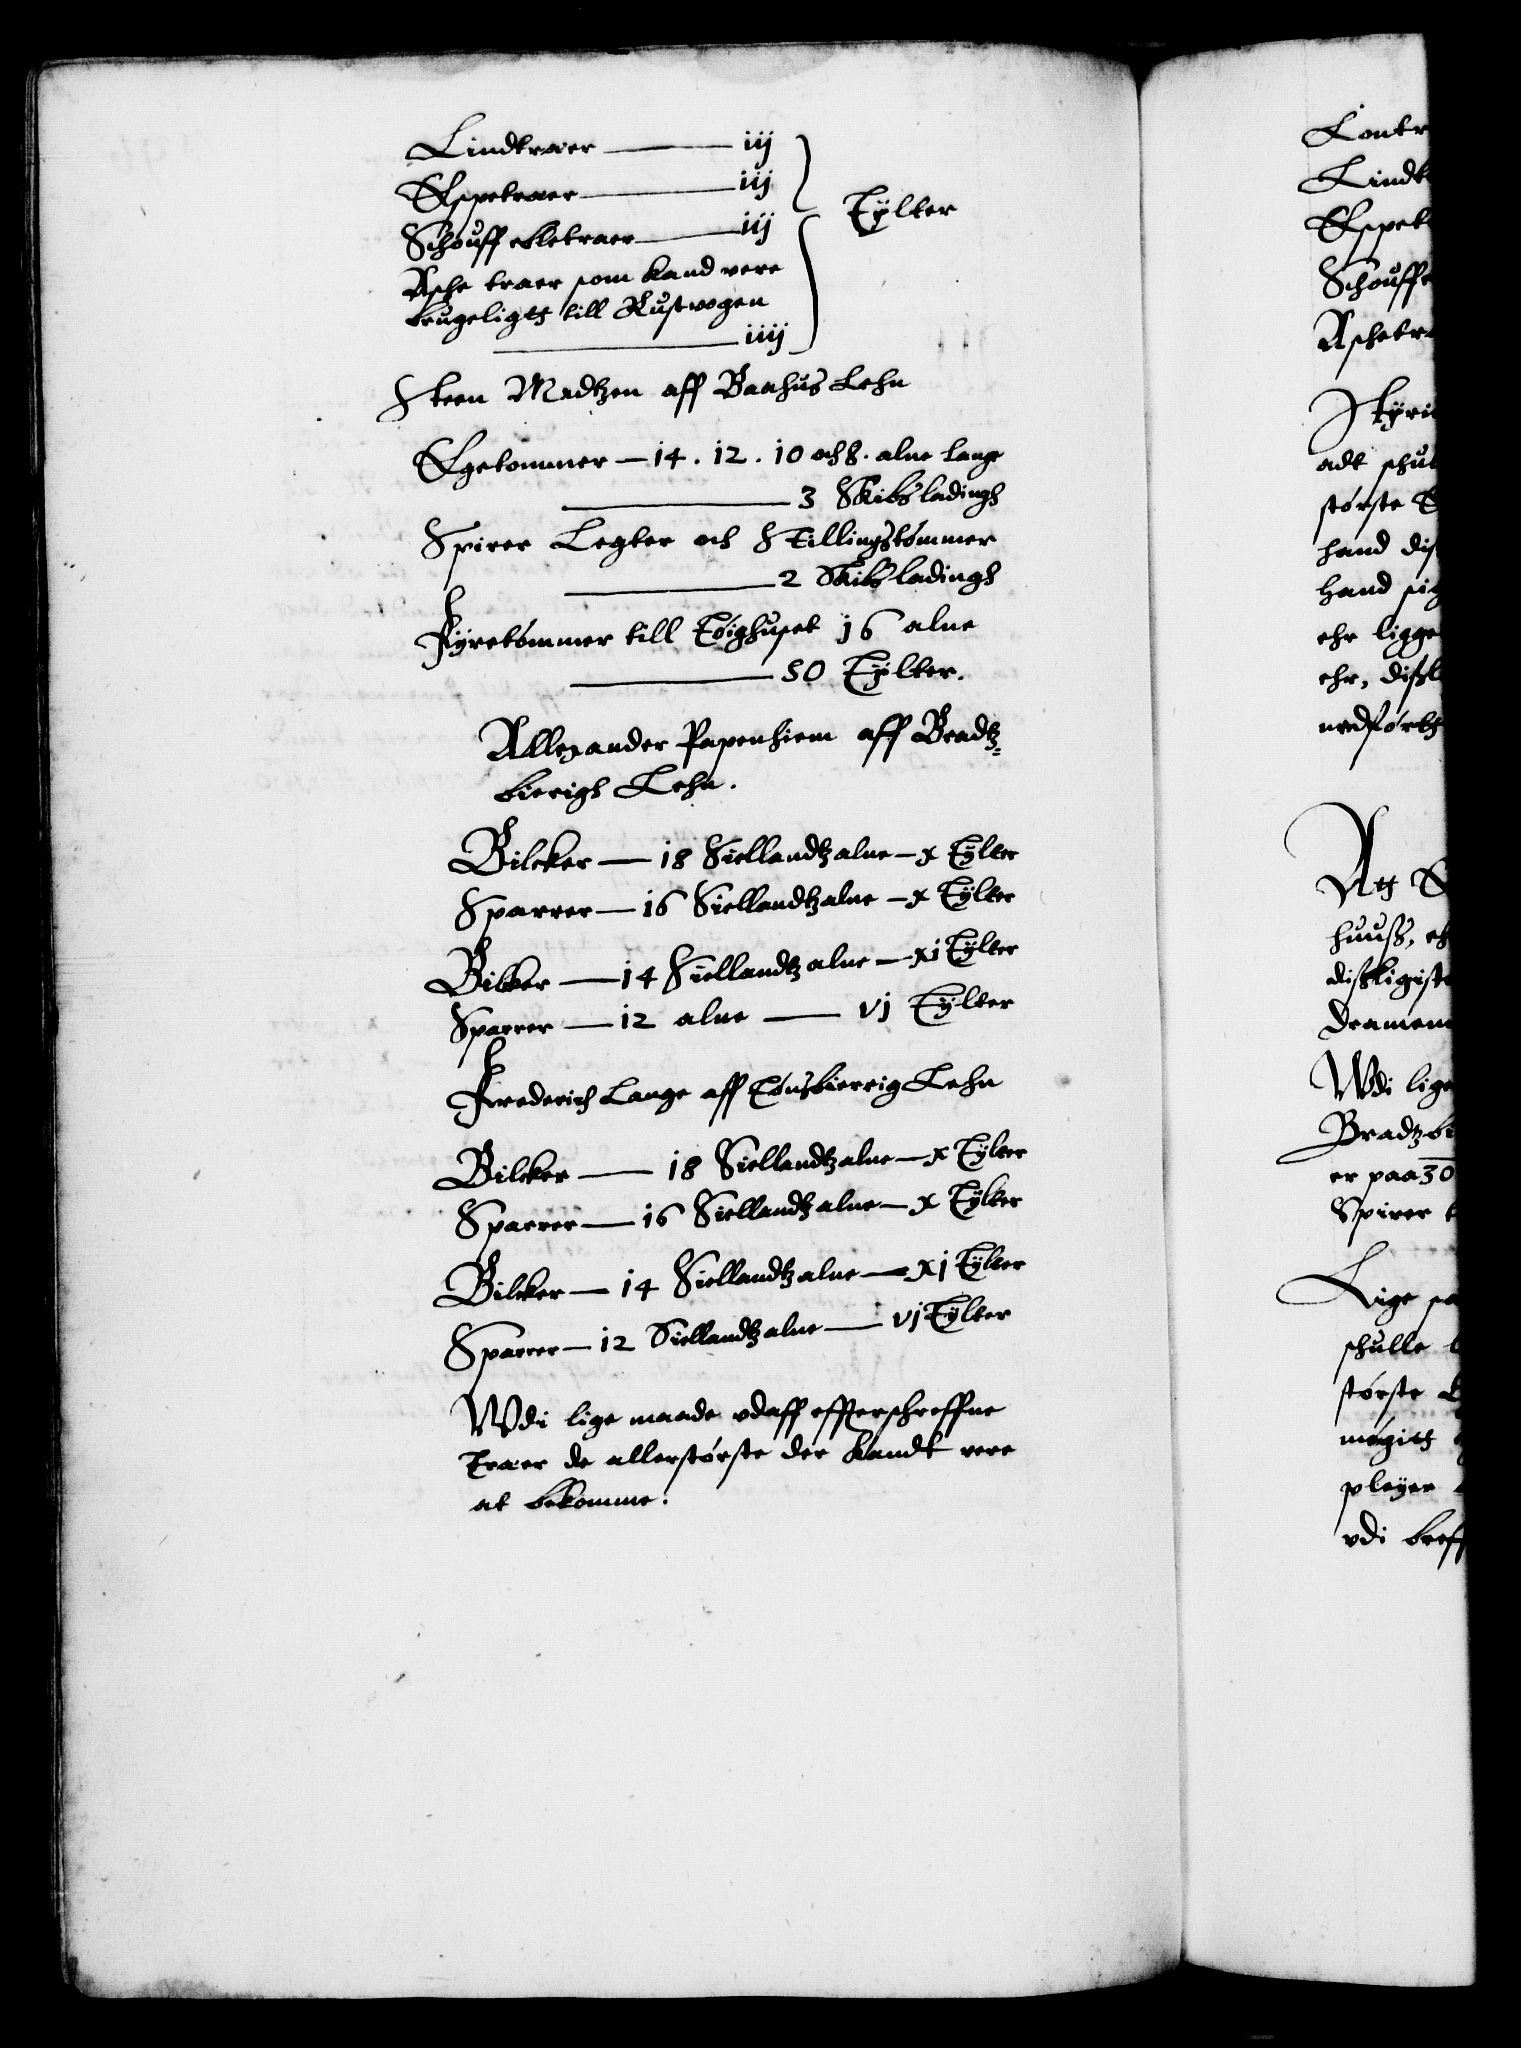 Lindtræer — iij
Espetræer — iij
Schouff ebletraer — iij
Tylter
Asche traer som kand vere
brugeligts till Rustwogen
— iiij
Steen Madtzen aff Baahus Lehn
Egetommer — 14 . 12 . 10 och 8 . alne lange
— 3 Skibs ladingh
Spirer Legter och Stillingstømmer
— 2 Skibs ladingh
Fyretømmer till Tøighuset 16 alne
— 50 Tylter.
Allexander Papenhiem aff Bradtz-
bierigh Lehn.
Bilcker — 18 Siellandtz alne — x Tylter
Sparrer — 16 Siellandtz alne — x Tylter
Bilker — 14 Siellandtz alne — xi Tylter
Sparrer — 12 alne — vj Tylter
Frederich Lange aff Tønsbierrig Lehn
Bilcker — 18 Siellandtz alne — x Tylter
Sparrer — 16 Siellandtz alne — x Tylter
Bilcker — 14 Siellandtz alne — xj Tylter
Sparrer — 12 Siellandtz alne — vj Tylter
Wdi lige maade vdaff effterschreffne
Træer de allerstørste der kandt vere
at bekomme.
Lindt
Espet
Schouffe
Aschetr
adt schul
største
hand dis
Hand sig
ehr ligge
ehr, dist
nedførts
huuss, eh
disligiste
Dramen
Wdi lige
Bradzbi
er paa 30
Spirer t
Lige sa
schulle
største
møgits
pleyer
vdi breff